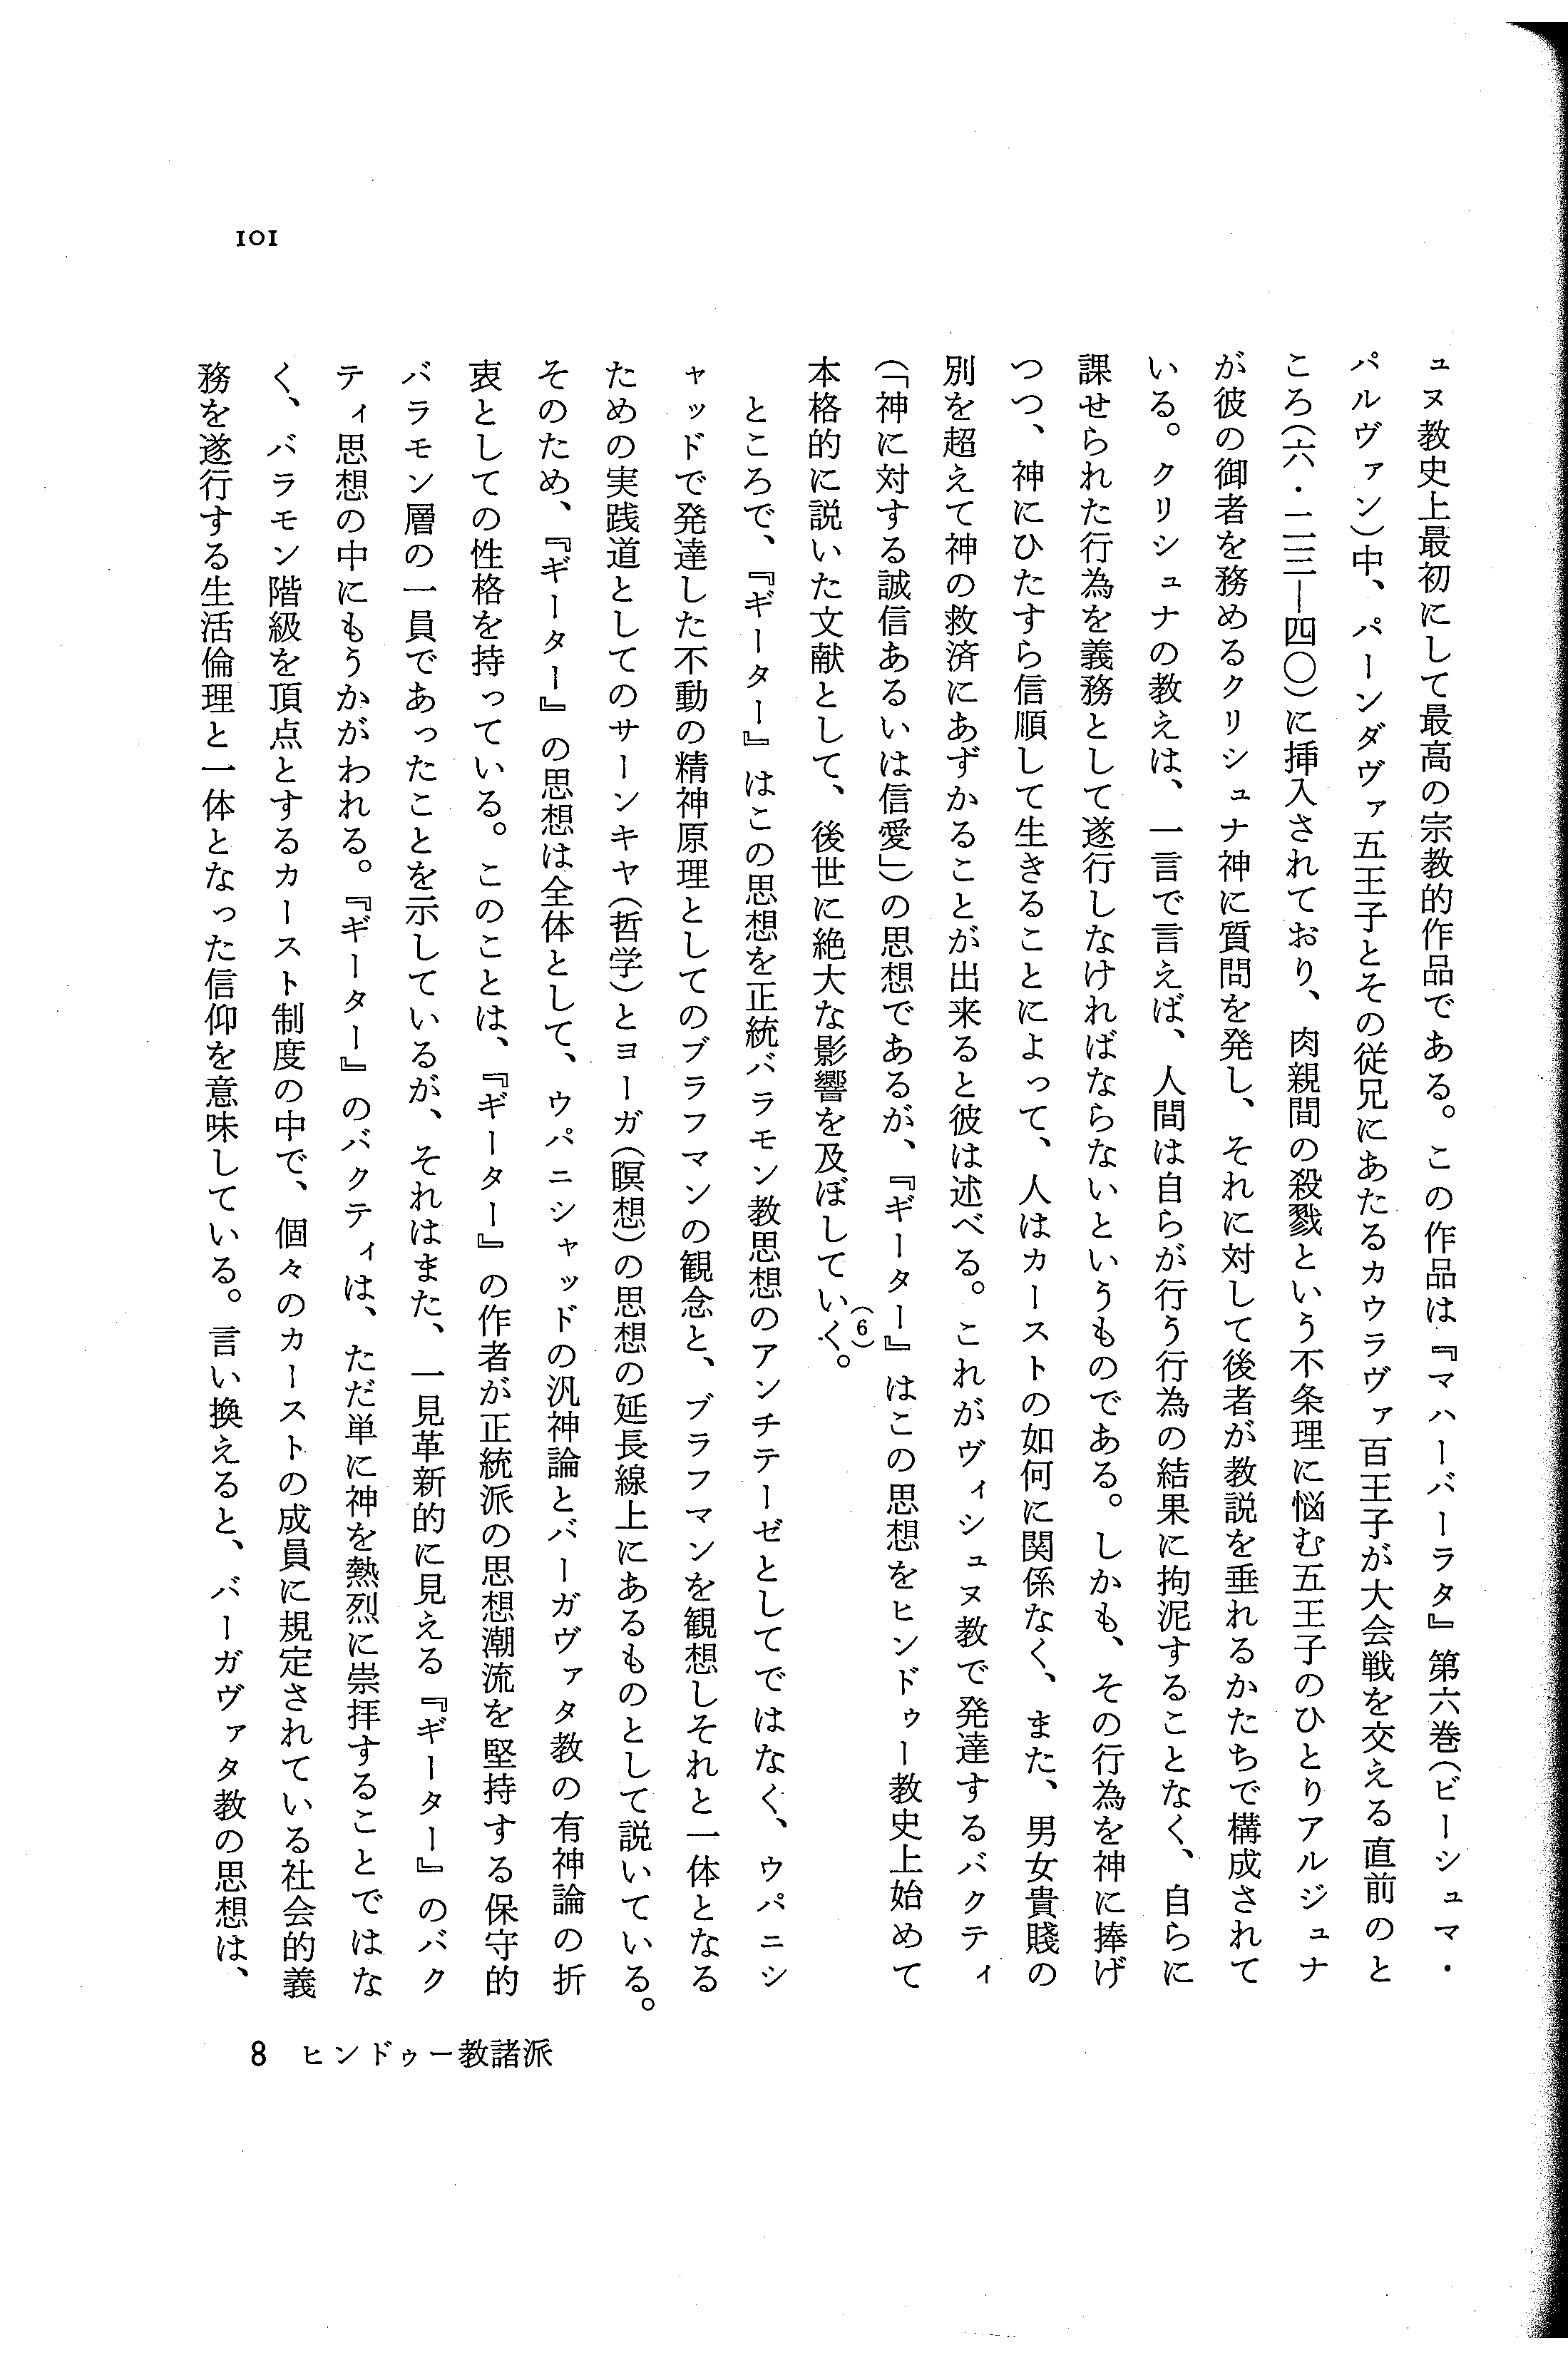 101
ュヌ教史上最初にして最高の宗教的作品である。この作品は『マハーバーラタ』第六巻(ビーシュマ・
パルヴァン)中、パーンダヴァ五王子とその従兄にあたるカウラヴァ百王子が大会戦を交える直前のと
ころ(六・二三—四〇)に挿入されており、肉親間の殺戮という不条理に悩む五王子のひとりアルジュナ
が彼の御者を務めるクリシュナ神に質問を発し、それに対して後者が教説を垂れるかたちで構成されて
いる。クリシュナの教えは、一言で言えば、人間は自らが行う行為の結果に拘泥することなく、自らに
課せられた行為を義務として遂行しなければならないというものである。しかも、その行為を神に捧げ
つつ、神にひたすら信順して生きることによって、人はカーストの如何に関係なく、また、男女貴賤の
別を超えて神の救済にあずかることが出来ると彼は述べる。これがヴィシュヌ教で発達するバクティ
(「神に対する誠信あるいは信愛」)の思想であるが、『ギーター』はこの思想をヒンドゥー教史上始めて
本格的に説いた文献として、後世に絶大な影響を及ぼしていく。(6)
ところで、『ギーター』はこの思想を正統バラモン教思想のアンチテーゼとしてではなく、ウパニシ
ャッドで発達した不動の精神原理としてのブラフマンの観念と、ブラフマンを観想しそれと一体となる
ための実践道としてのサーンキヤ(哲学)とヨーガ(瞑想)の思想の延長線上にあるものとして説いている。
そのため、『ギーター』の思想は全体として、ウパニシャッドの汎神論とバーガヴァタ教の有神論の折
衷としての性格を持っている。このことは、『ギーター』の作者が正統派の思想潮流を堅持する保守的
バラモン層の一員であったことを示しているが、それはまた、一見革新的に見える『ギーター』のバク
ティ思想の中にもうかがわれる。『ギーター』のバクティは、ただ単に神を熱烈に崇拝することではな
く、バラモン階級を頂点とするカースト制度の中で、個々のカーストの成員に規定されている社会的義
務を遂行する生活倫理と一体となった信仰を意味している。言い換えると、バーガヴァタ教の思想は、
8 ヒンドゥー教諸派